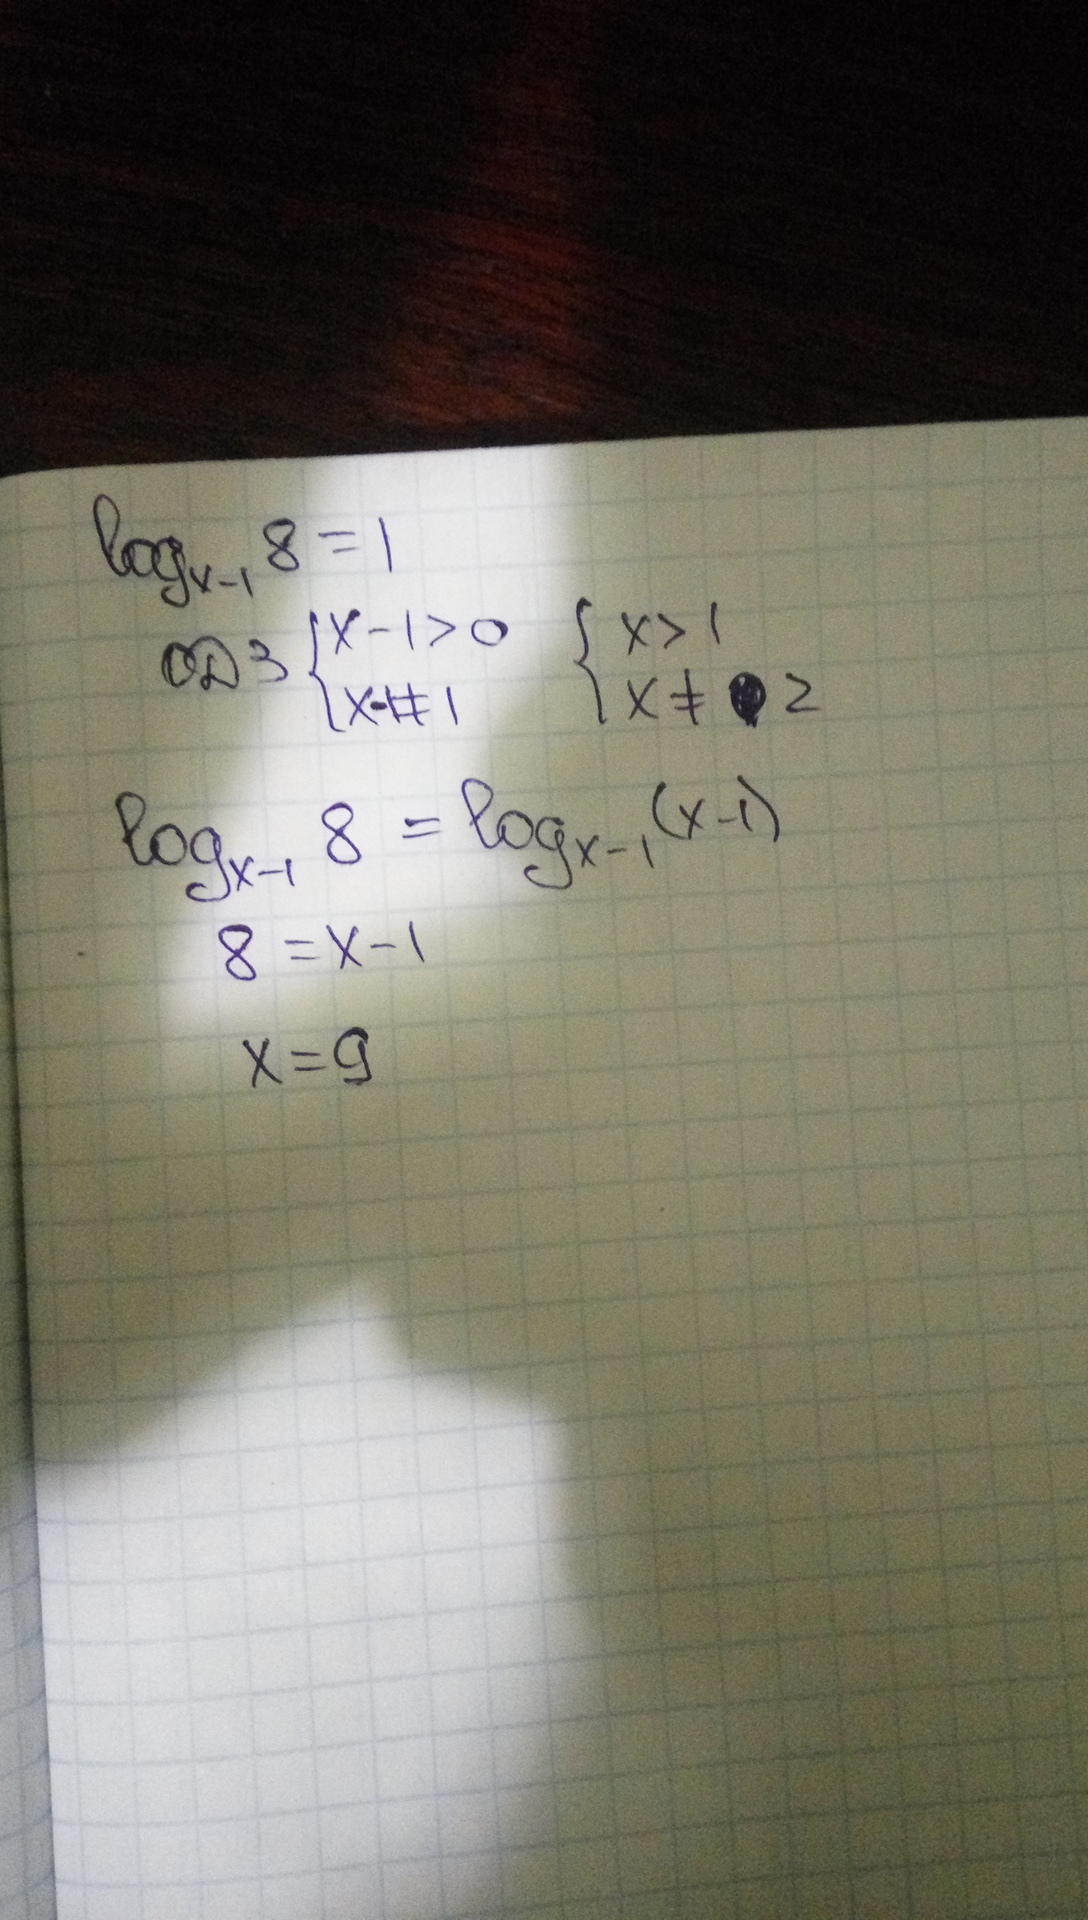 logₓ₋₁ 8 = 1
ОДЗ { x-1>0 { x>1
x-1≠1 x ≠ 2
logₓ₋₁ 8 = logₓ₋₁ (x-1)
8 = x-1
x = 9